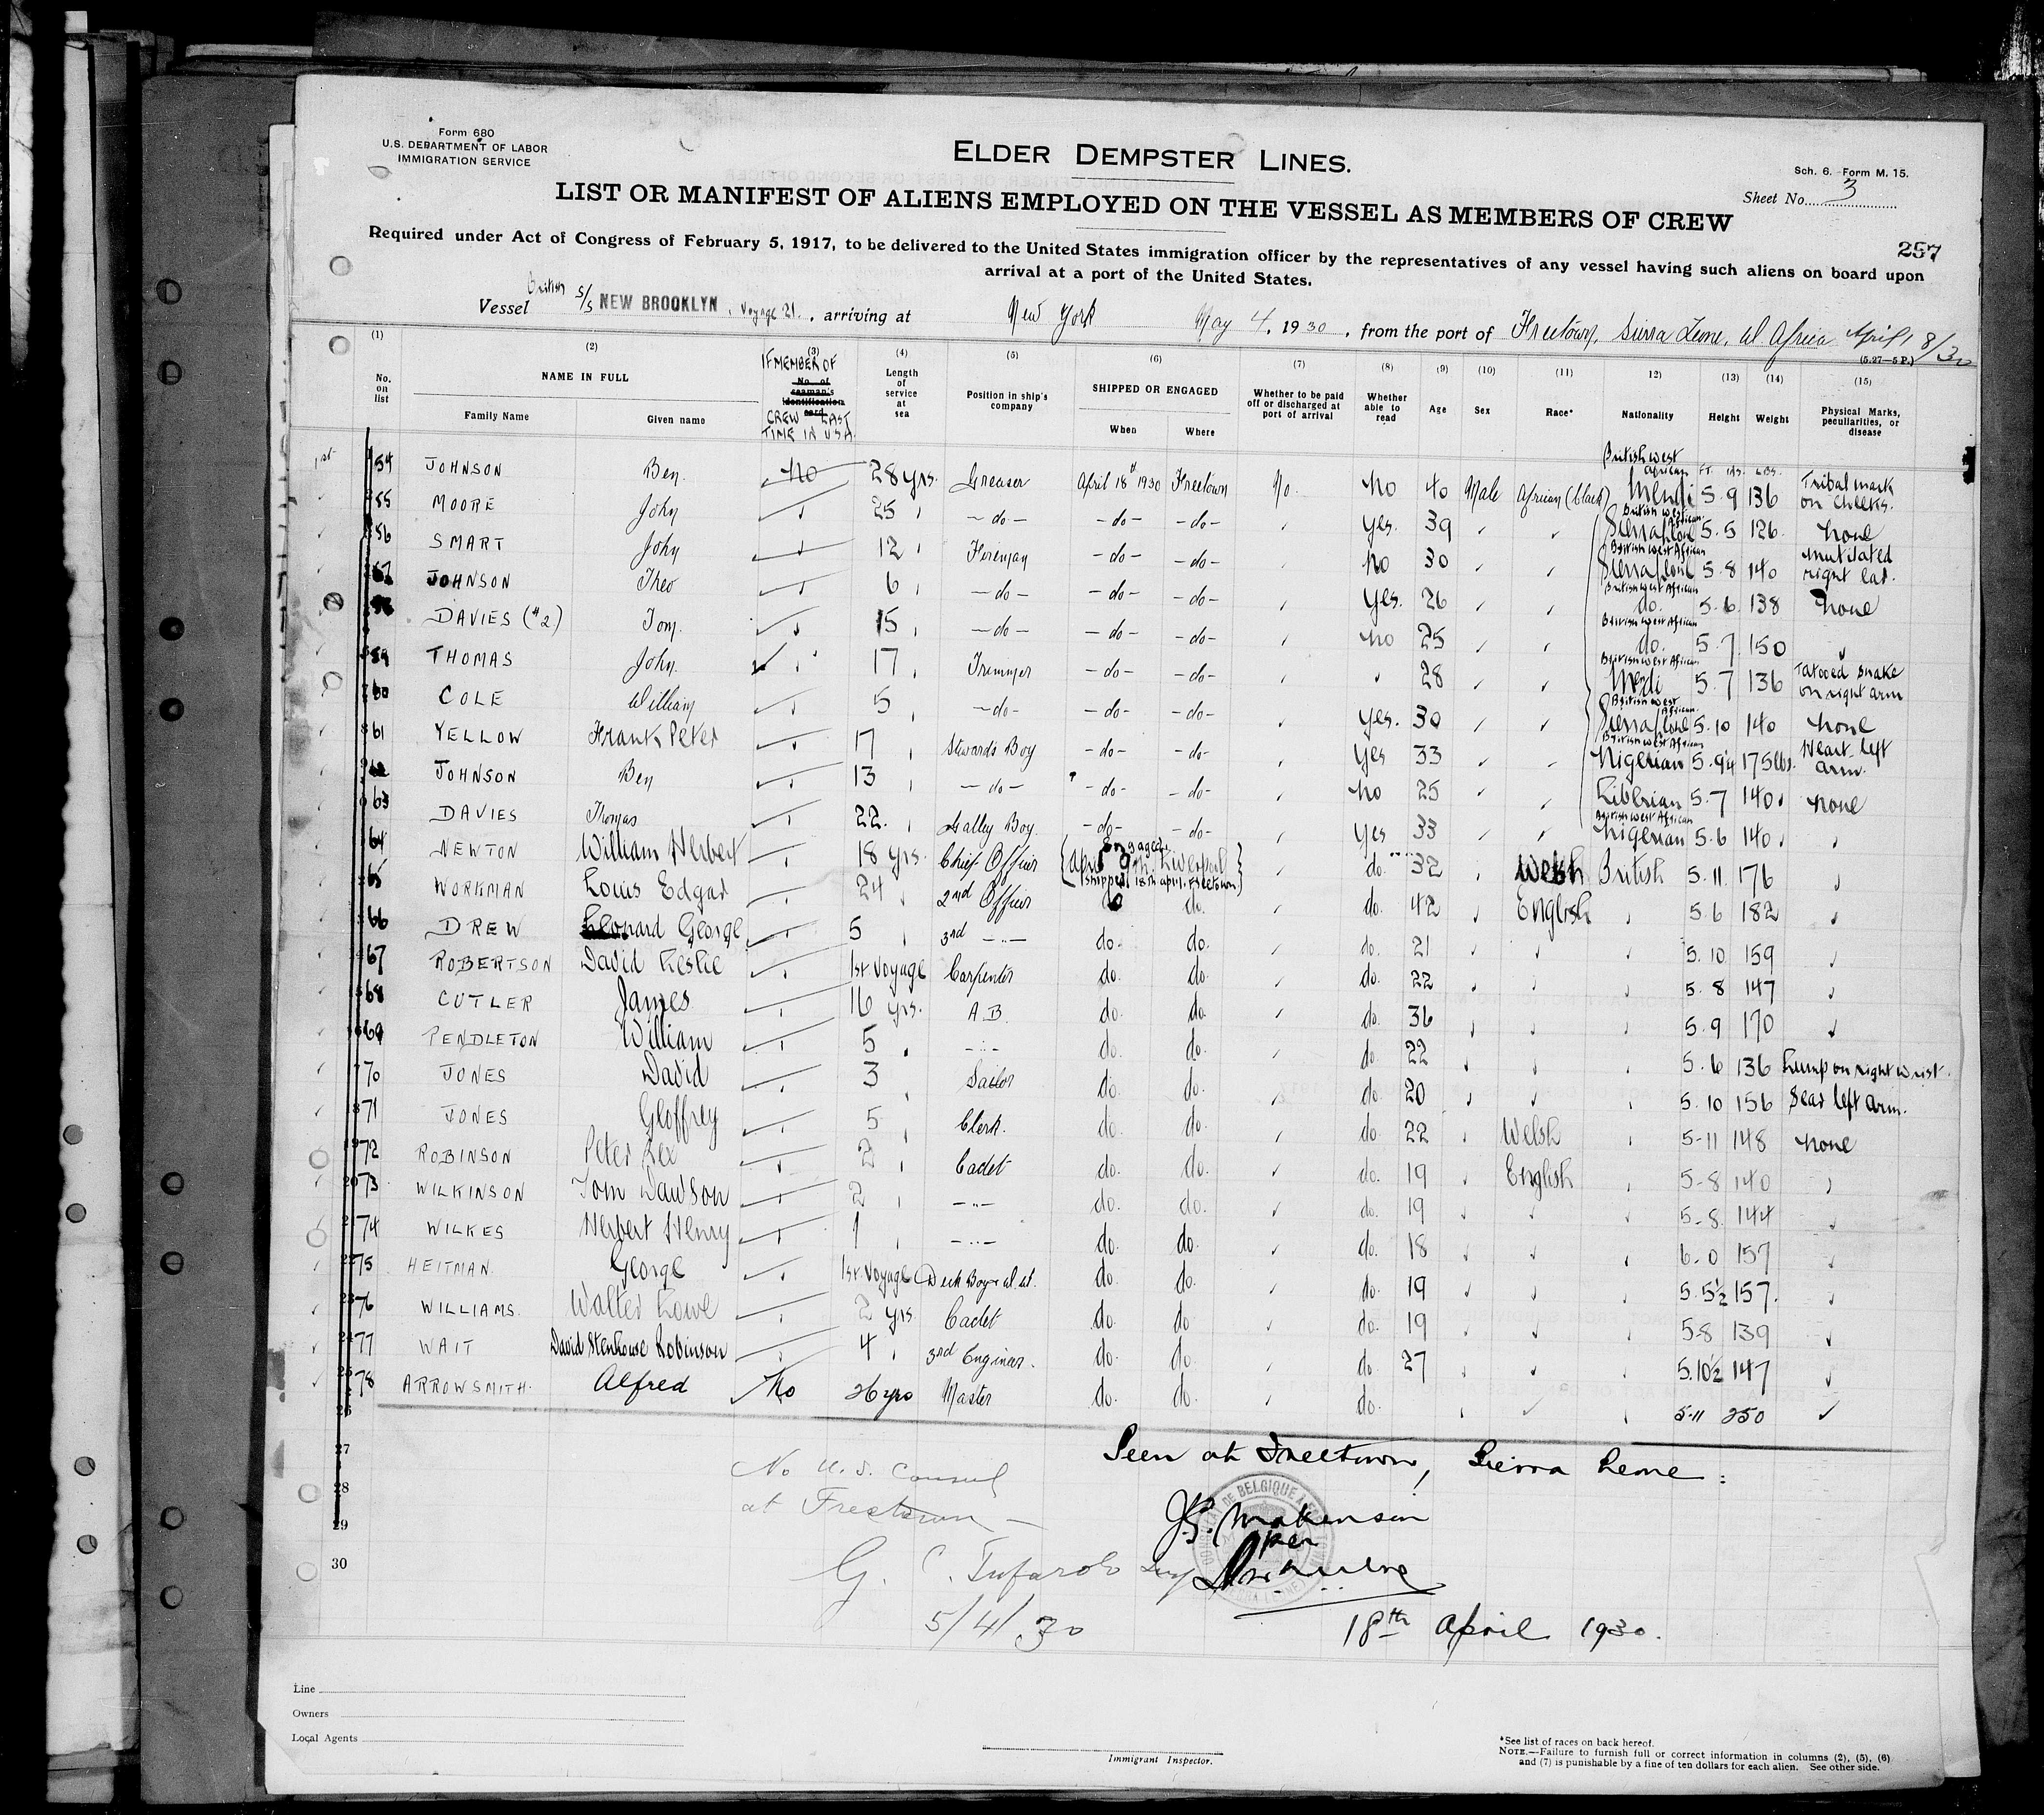 Form 680
U.S. DEPARTMENT OF LABOR
IMMIGRATION SERVICE
ELDER DEMPSTER LINES.
Sch. 6. Form M. 15.
Sheet No. 3
LIST OR MANIFEST OF ALIENS EMPLOYED ON THE VESSEL AS MEMBERS OF CREW
257
Required under Act of Congress of February 5, 1917, to be delivered to the United States immigration officer by the representatives of any vessel having such aliens on board upon
arrival at a port of the United States.
Vessel British S/S NEW BROOKLYN, Voyage 21., arriving at New York May 4, 1930, from the port of Freetown, Sierra Leone, W Africa April 18/30
(5.27—5 P.)
(1) (2) (3) (4) (5) (6) (7) (8) (9) (10) (11) (12) (13) (14) (15)
No. on list NAME IN FULL Family Name Given name
IF MEMBER OF CREW LAST TIME IN USA.
No. of seaman's identification card
Length of service at sea
Position in ship's company
SHIPPED OR ENGAGED When Where
Whether to be paid off or discharged at port of arrival
Whether able to read
Age Sex Race* Nationality Height Weight
Physical Marks, peculiarities, or disease
1st 54 JOHNSON Ben No 28 yrs. Greaser April 18th 1930 Freetown No. No 40 Male African (black) British West African Mendi FT. INS. LBS. 5 9 136 Tribal mark on cheeks.
55 MOORE John 25 -do- -do- -do- Yes. 39 British West African Sierra Leone 5.5 126 None
56 SMART John 12 Fireman -do- -do- No 30 British West African Sierra Leone 5.8 140 Mutilated right ear.
57 JOHNSON Theo 6 -do- -do- -do- Yes. 26 British West African do. 5.6 138 None
58 DAVIES (#2) Tom. 15 -do- -do- -do- No 25 British West African do. 5.7 150
59 THOMAS John. 17 Trimmer -do- -do- 28 British West African Mendi 5.7 136 Tatooed snake on right arm
60 COLE William 5 -do- -do- -do- Yes. 30 British West African Sierra Leone 5.10 140 None
61 YELLOW Frank Peter 17 Stewards Boy -do- -do- Yes 33 British West African Nigerian 5.9¼ 175 lbs. Heart left arm.
62 JOHNSON Ben 13 -do- -do- -do- No 25 Liberian 5.7 140 None
63 DAVIES Thomas 22. Galley Boy. -do- -do- Yes 33 British West African Nigerian 5.6 140
64 NEWTON William Herbert 18 yrs. Chief Officer Engaged April 9th. Liverpool Shipped 18th April. Freetown do. 32 Welsh British 5.11 176
65 WORKMAN Louis Edgar 24 2nd Officer do. do. 42 English 5.6 182
66 DREW Leonard George 5 3rd -"- do. do. do. 21 5.10 159
67 ROBERTSON David Leslie 1st Voyage Carpenter do. do. do. 22 5.8 147
68 CUTLER James 16 yrs. A.B. do. do. do. 36 5.9 170
69 PENDLETON William 5 -"- do. do. do. 22 5.6 136 Lump on right wrist.
70 JONES David 3 Sailor do. do. do. 20 5.10 156 Scar left arm.
71 JONES Geoffrey 5 Clerk. do. do. do. 22 Welsh 5-11 148 None
72 ROBINSON Peter Rex 2 Cadet do. do. do. 19 English 5-8 140
73 WILKINSON Tom Dawson 2 -"- do. do. do. 19 5-8 144
74 WILKES Herbert Henry 1 -"- do. do. do. 18 6.0 157
75 HEITMAN. George 1st Voyage Deck Boy do. do. do. 19 5.5½ 157.
76 WILLIAMS. Walter Lowe 2 yrs Cadet do. do. do. 19 5-8 139
77 WAIT David Stenhouse Robinson 4 3rd Engineer. do. do. do. 27 5.10½ 147
78 ARROWSMITH. Alfred No 26 yrs Master do. do. do. 5-11 250
26
27
28
29
30
Seen at Freetown, Sierra Leone:
No U.S. Consul
at Freetown —
per
5/4/30
18th April 1930.
Line
Owners
Local Agents
Immigrant Inspector.
*See list of races on back hereof.
NOTE.—Failure to furnish full or correct information in columns (2), (5), (6)
and (7) is punishable by a fine of ten dollars for each alien. See other side.